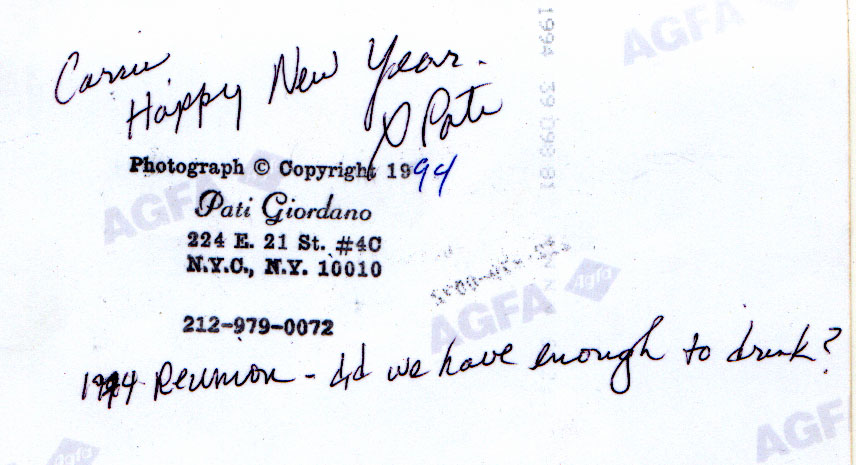 Carrie
Happy New Year.
Pati
Photograph © Copyright 1994
Pati Giordano
224 E. 21 St. #4C
N.Y.C., N.Y. 10010
212-979-0072
1994 Reunion - did we have enough to drink?
AGFA
AGFA
AGFA Agfa
AGFA
Agfa
1994